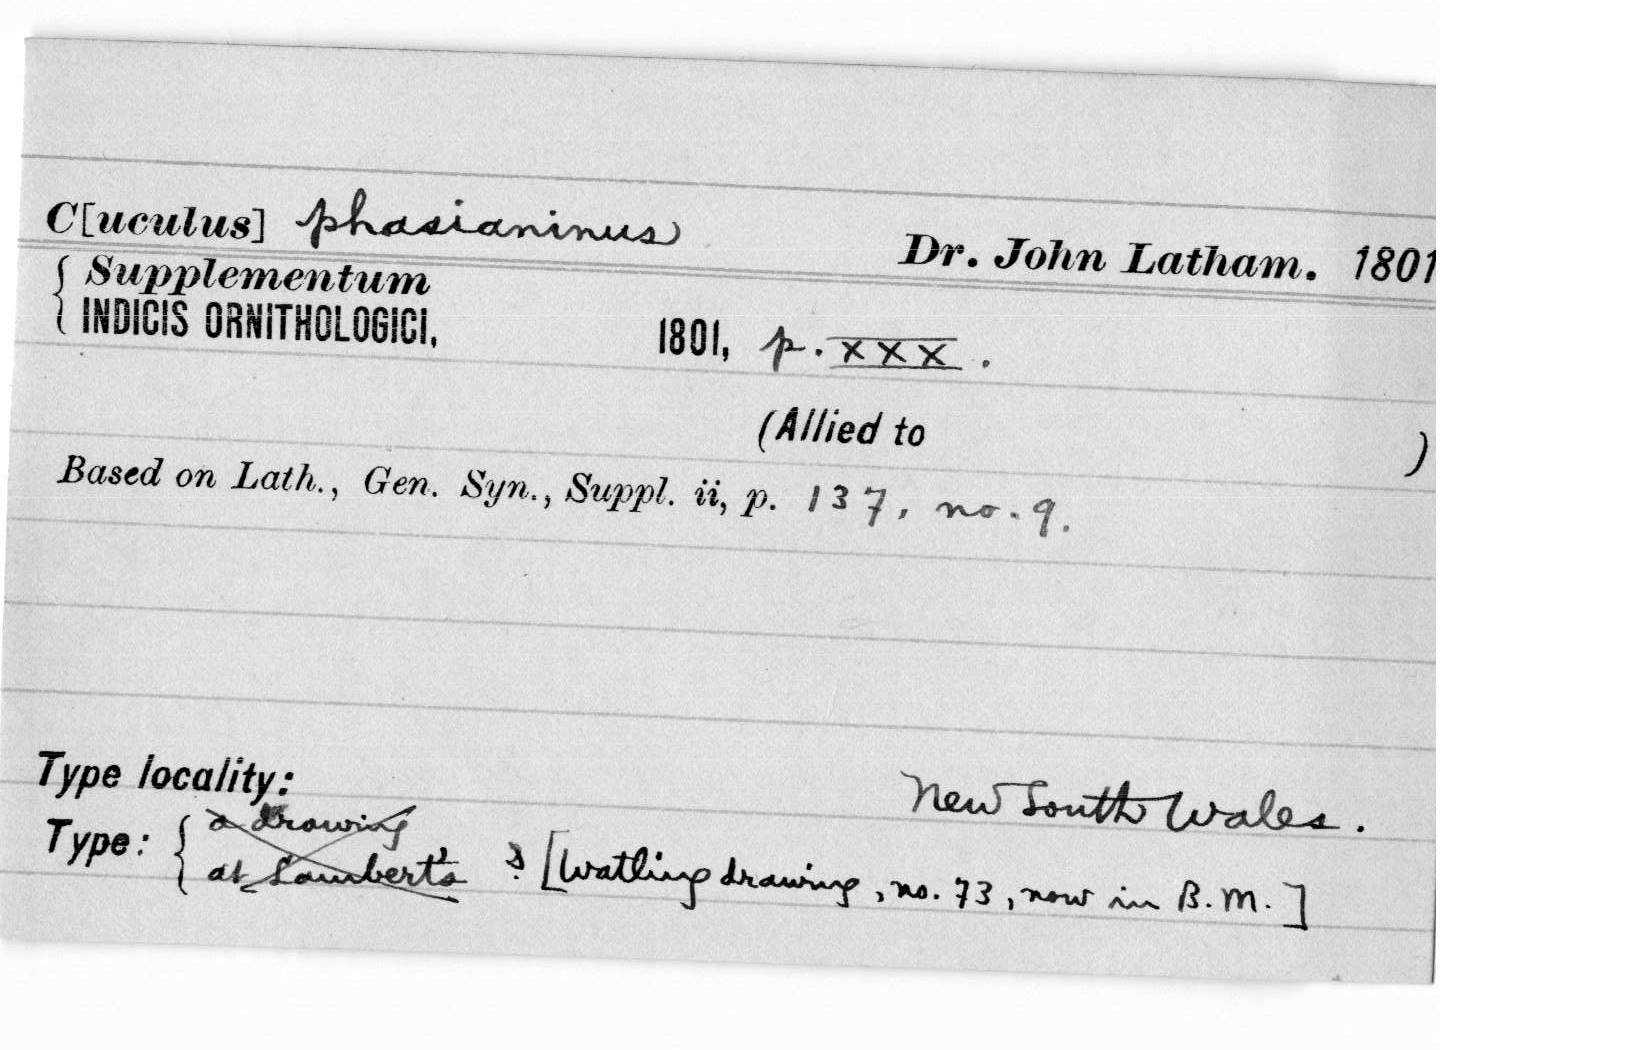 C[uculus] phasianinus Dr. John Latham. 1801
{ Supplementum
INDICIS ORNITHOLOGICI, 1801, p. XXX.
(Allied to )
Based on Lath., Gen. Syn., Suppl. ii, p. 137, no. 9.
Type locality: New South Wales.
Type: { a drawing
at Lambert's ? [Watling drawing, no. 73, now in B.M.]